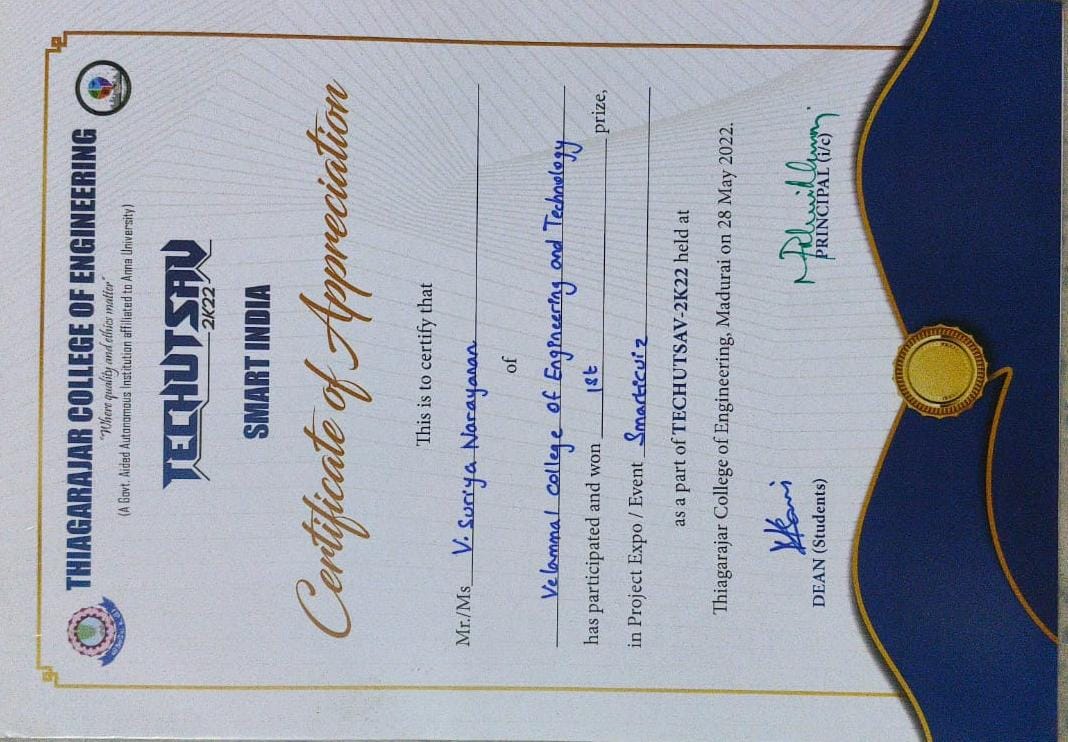 THIAGARAJAR COLLEGE OF ENGINEERING
"Where quality and ethics matter"
(A Govt. Aided Autonomous Institution affiliated to Anna University)
TECHUTSAV
2K22
SMART INDIA
Certificate of Appreciation
This is to certify that
Mr./Ms V. Suriya Narayanan
of
Velammal college of Engineering and Technology
has participated and won 1st prize,
in Project Expo / Event Smarticuiz
as a part of TECHUTSAV-2K22 held at
Thiagarajar College of Engineering, Madurai on 28 May 2022.
DEAN (Students) PRINCIPAL (i/c)